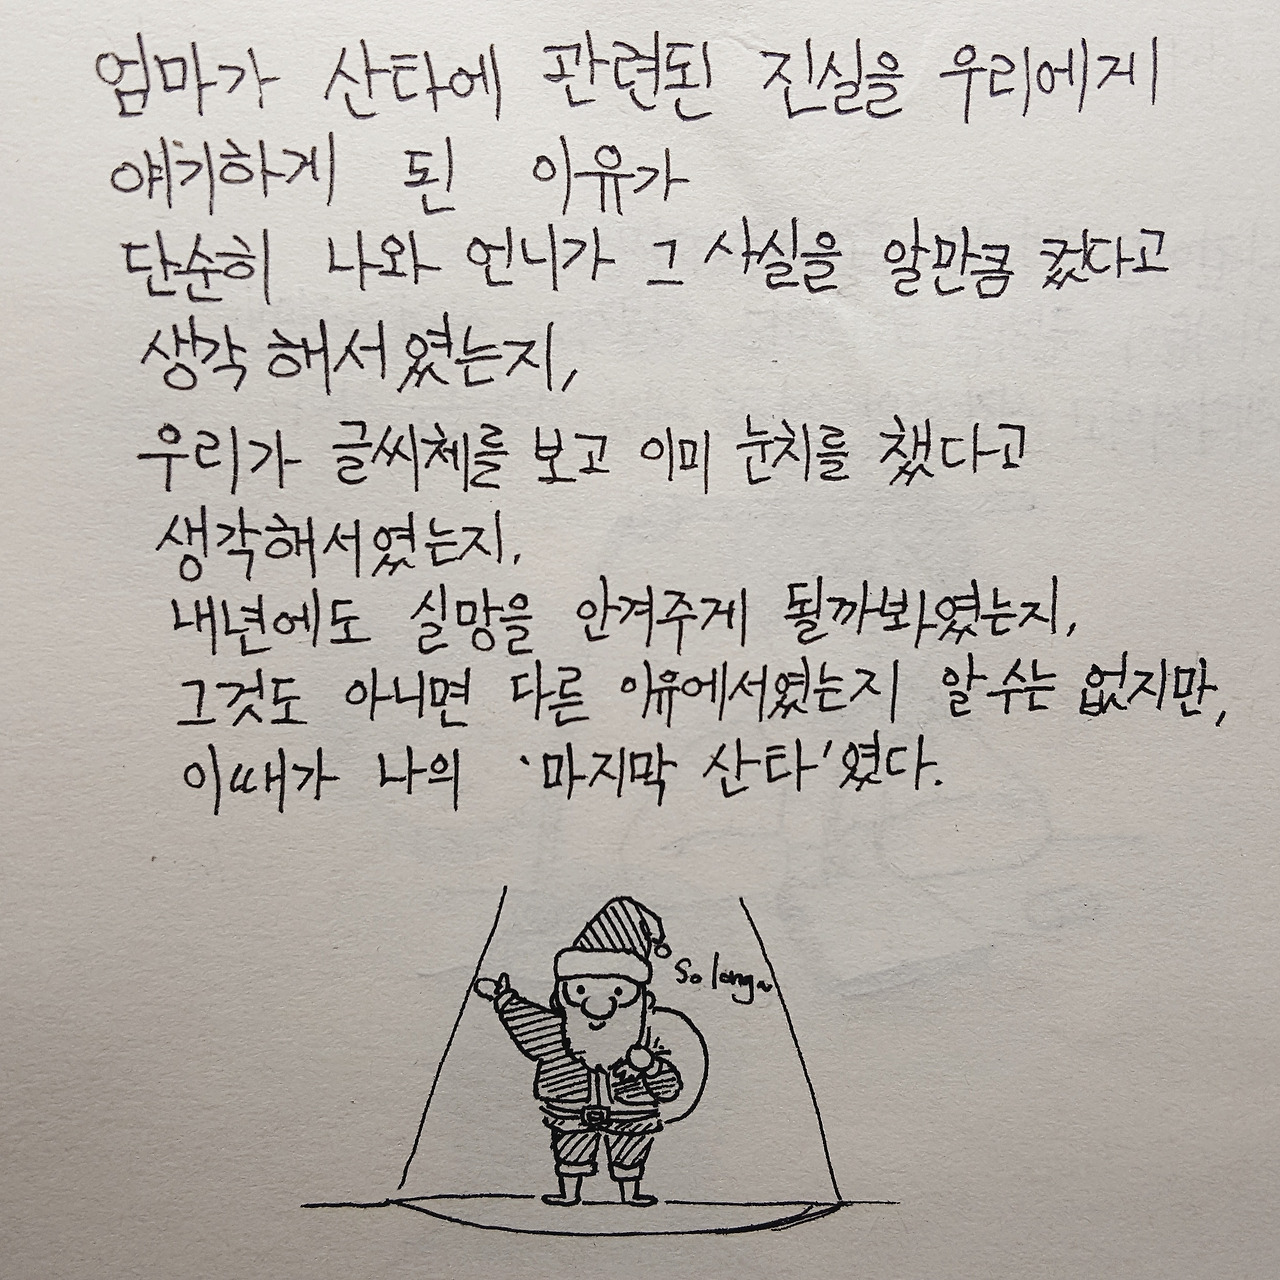 엄마가 산타에 관련된 진실을 우리에게
얘기하게 된 이유가
단순히 나와 언니가 그 사실을 알만큼 컸다고
생각해서였는지,
우리가 글씨체를 보고 이미 눈치를 챘다고
생각해서였는지,
내년에도 실망을 안겨주게 될까봐였는지,
그것도 아니면 다른 이유에서였는지 알 수는 없지만,
이때가 나의 '마지막 산타'였다.
So long~